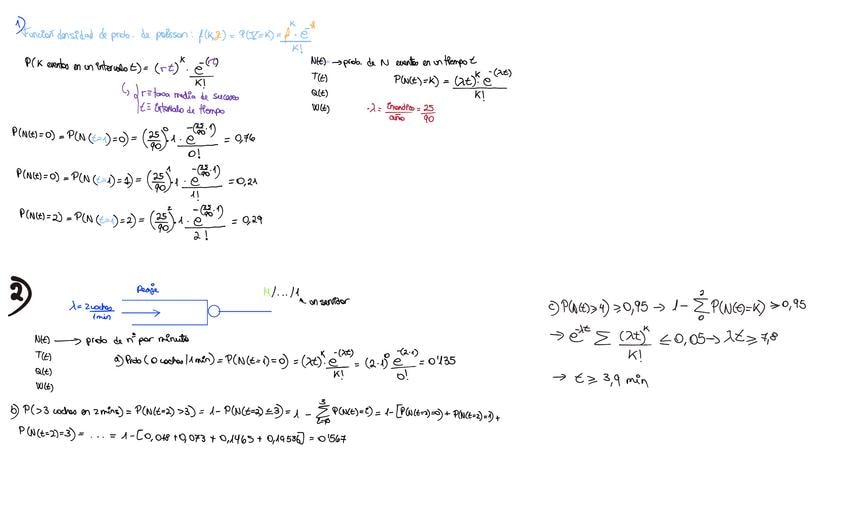 1)
Función densidad de prob. de poisson: f(k,λ) = P(X=K) = λ^K · e^-λ / K!
P(K eventos en un intervalo t) = (rt)^K · e^-(rt) / K!
r = tasa media de suceso
t = intervalo de tiempo
N(t) → prob. de N eventos en un tiempo t
T(t)
Q(t)
W(t)
P(N(t)=K) = (λt)^K · e^-(λt) / K!
· λ = incendios / año = 25 / 90
P(N(t)=0) = P(N(t=1)=0) = (25/90)^0 · 1 · e^-(25/90 · 1) / 0! = 0,76
P(N(t)=0) = P(N(t=1)=1) = (25/90)^1 · 1 · e^-(25/90 · 1) / 1! = 0,21
P(N(t)=2) = P(N(t=1)=2) = (25/90)^2 · 1 · e^-(25/90 · 1) / 2! = 0,29
2)
Peaje
λ = 2 coches / 1 min
M/.../1
un servidor
N(t) → prob de nº por minuto
T(t)
Q(t)
W(t)
a) Prob(0 coches/1 min) = P(N(t=1)=0) = (λt)^K · e^-(λt) / K! = (2·1)^0 e^-(2·1) / 0! = 0'135
b) P(>3 coches en 2 mins) = P(N(t=2)>3) = 1 - P(N(t=2)≤3) = 1 - 3 Σ i=0 P(N(t)=i) = 1 - [P(N(t=2)=0) + P(N(t=2)=1) +
P(N(t=2)=3) = .... = 1 - [0,018 + 0,073 + 0,1465 + 0,19536] = 0'567
c) P(N(t)≥4) ≥ 0,95 → 1 - 2 Σ 0 P(N(t)=K) ≥ 0,95
→ e^-λt Σ (λt)^K / K! ≤ 0,05 → λt ≥ 7,8
→ t ≥ 3,9 min